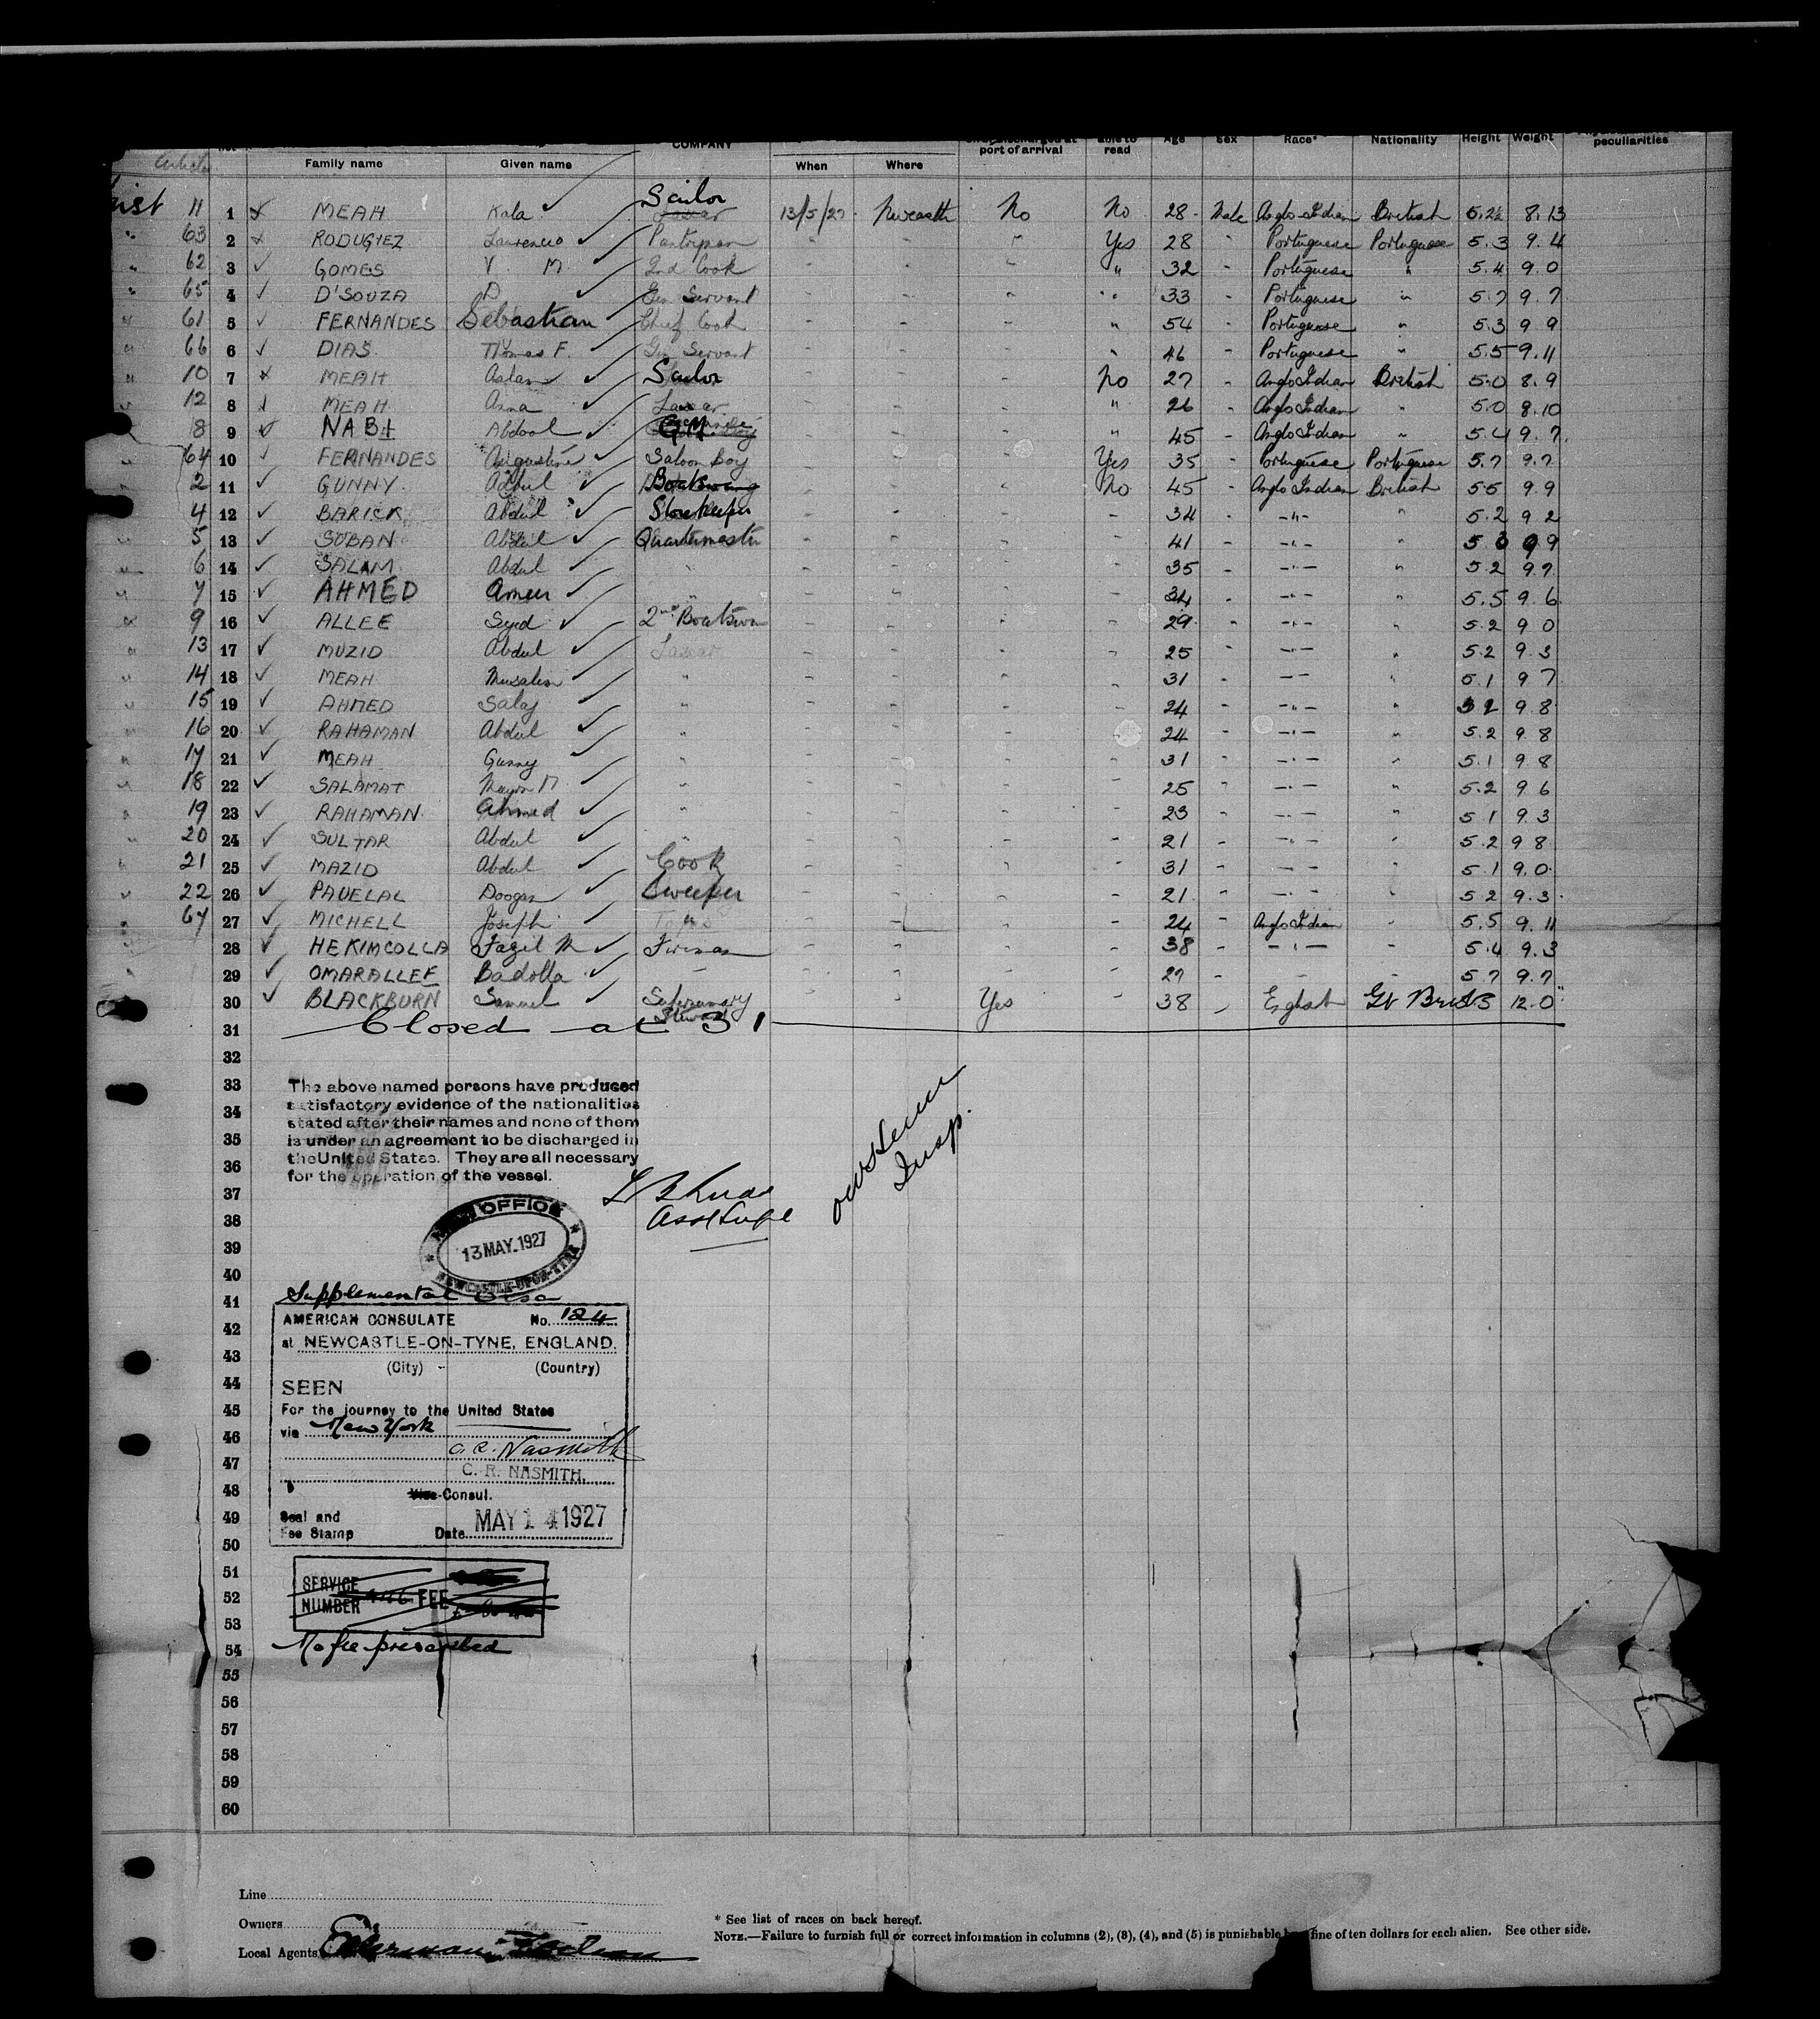 COMPANY port of arrival able to read Age Sex Race* Nationality Height Weight peculiarities
Family name Given name When Where
11 1 MEAH Kala Sailor 13/5/27 Newcastle No No 28 Male Anglo Indian British 5.2½ 8.13
" 63 2 RODUGIEZ Laurencio Pantryman - - " Yes 28 - Portuguese Portuguese 5.3 9.4
" 62 3 GOMES V M. 2nd Cook - - - " 32 - Portuguese " 5.4 9.0
" 65 4 D'SOUZA D Gen Servant - - - " 33 - Portuguese " 5.7 9.7
" 61 5 FERNANDES Sebastian Chief Cook - - - " 54 - Portuguese " 5.3 9 9
" 66 6 DIAS Thomas F. Gen Servant - - - " 46 - Portuguese " 5.5 9.11
" 10 7 MEAH Aslam Sailor - - - No 27 - Anglo Indian British 5.0 8.9
" 12 8 MEAH Asna Lascar - - - " 26 - Anglo Indian " 5.0 8.10
8 9 NABI Abdool - - - " 45 - Anglo Indian " 5.4 9.7.
64 10 FERNANDES Augustine Saloon Boy - - - Yes 35 - Portuguese Portuguese 5.7 9.7
2 11 GUNNY. Abdul - - - No 45 - Anglo Indian British 5.5 9.9
4 12 BARICK Abdul Storekeeper - - - - 34 - -"- " 5.2 9 2
5 13 SOBAN Abdul Quartermaster - - - - 41 - -"- " 9 9
6 14 SALAM Abdul " - - - - 35 - -"- " 5.2 9.7.
7 15 AHMED Ameer " - - - - 34 - -"- " 5.5 9.6
9 16 ALLEE Syed 2nd Boatswn - - - - 29 - -"- " 5.2 9 0
13 17 MUZID Abdul Lascar - - - - 25 - -"- " 5.2 9.3
14 18 MEAH " - - - - 31 - -"- " 5.1 9 7
15 19 AHMED " - - - - 24 - -"- " 9.8
16 20 RAHAMAN Abdul " - - - - 24 - -"- " 5.2 9.8
17 21 MEAH Gunny " - - - - 31 - -"- " 5.1 9 8
18 22 SALAMAT " - - - - 25 - -"- " 5.2 9 6
19 23 RAHAMAN Ahmed " - - - - 23 - -"- " 5.1 9.3
20 24 SULTAR Abdul " - - - - 21 - -"- " 5.2 9 8
21 25 MAZID Abdul Cook - - - - 31 - -"- " 5.1 9.0
22 26 PAUELAL Sweeper - - - - 21 - -"- " 5.2 9.3
67 27 MICHELL Joseph - - - - 24 - Anglo Indian - 5.5 9.11
28 HEKIMCOLLA Fazil M Fireman - - - - 38 - -"- - 5.4 9.3
29 OMARALLEE Badolla - - - - - 27 - - - 5.7 9.7
30 BLACKBURN Samuel Supernumary Steward - - Yes - 38 - English Gt Brit 12.0
31 Closed at 31
32
33 The above named persons have produced
34 satisfactory evidence of the nationalities
stated after their names and none of them
35 is under an agreement to be discharged in
the United States. They are all necessary
36 for the operation of the vessel.
37
38 Asst Supt
Insp.
13 MAY.1927
NEWCASTLE-UPON-TYNE
39
40
41 Supplemental Visa
42 AMERICAN CONSULATE No. 124
at NEWCASTLE-ON-TYNE, ENGLAND.
43 (City) - (Country)
44 SEEN
45 For the journey to the United States
46 via New York
C.R. Nasmith
47 C. R. NASMITH.
48 Vice-Consul.
49 Seal and
Fee Stamp Date MAY 14 1927
50
51
52 SERVICE
NUMBER FEE
53
54 No fee prescribed
55
56
57
58
59
60
Line
Owners
Local Agents
* See list of races on back hereof.
NOTE.—Failure to furnish full or correct information in columns (2), (3), (4), and (5) is punishable fine of ten dollars for each alien. See other side.